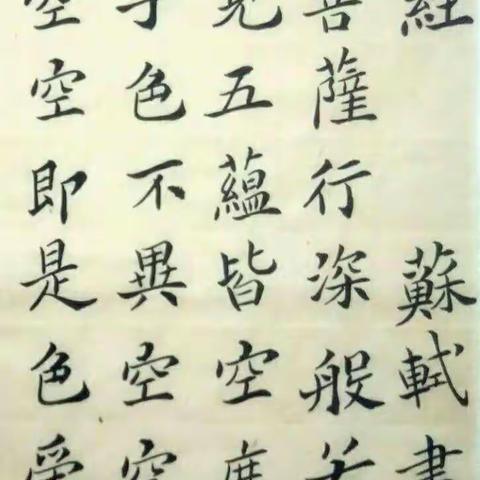 經 蘇軾書
菩薩行深般若
見五蘊皆空度
子色不異空空
空空即是色受